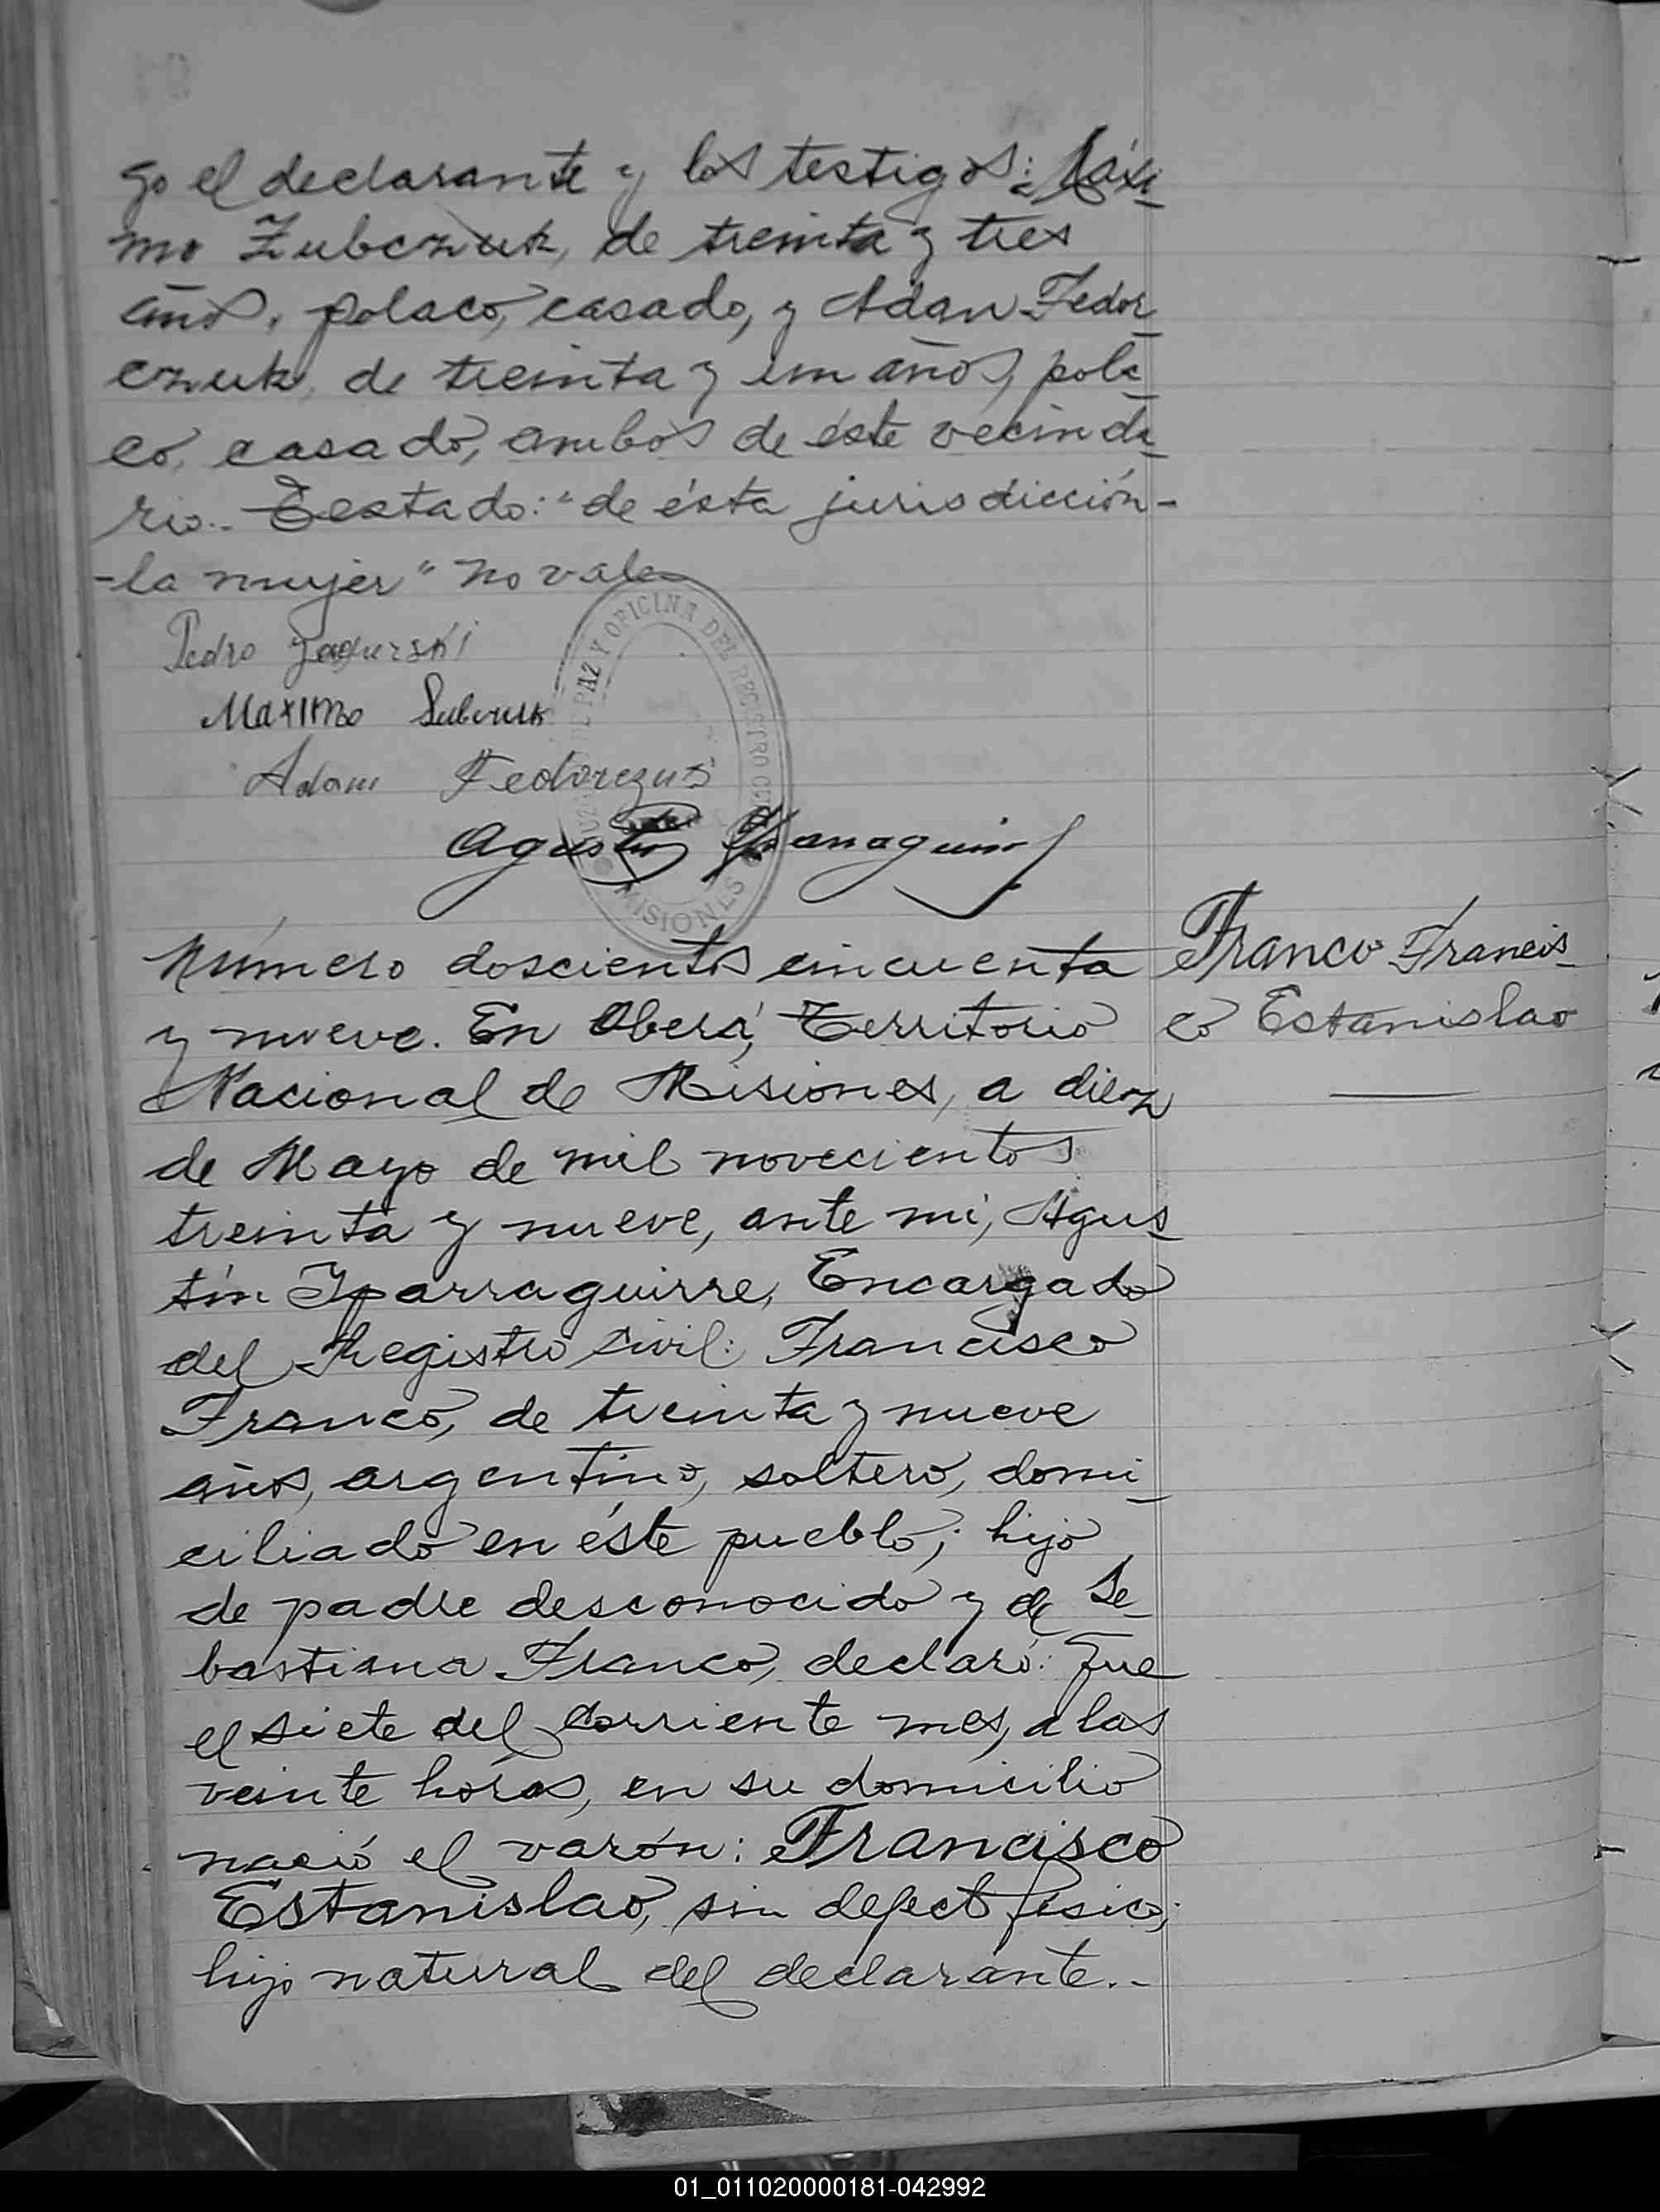 go el declarante y los testigos: Máxi_
mo Zubczuk, de treinta y tres
años, polaco, casado, y Adan Fedor_
czuk, de treinta y un años, pola_
co, casado, ambos de éste vecinda_
rio.- Testado: "de ésta jurisdicción-
-la mujer" no vale
Pedro
Maximo
Adam
PAZ Y OFICINA DEL REGISTRO
MISIONES
Agustín Yparraguirre
Número doscientos cincuenta
Franco Francis_
y nueve. En Oberá, Territorio
co Estanislao
Nacional de Misiones, a diez
de Mayo de mil novecientos
treinta y nueve, ante mí, Agus_
tín Yparraguirre, Encargado
del Registro Civil: Francisco
Franco, de treinta y nueve
años, argentino, soltero, domi_
ciliado en éste pueblo; hijo
de padre desconocido y de Se_
bastiana Franco, declaró: Que
el siete del corriente mes, a las
veinte horas, en su domicilio
nació el varón: Francisco
Estanislao, sin defecto físico;
hijo natural del declarante.-
01_011020000181-042992